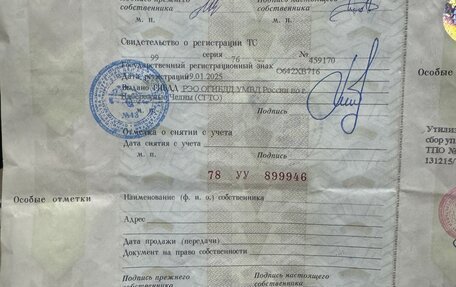 Подпись прежнего Подпись настоящего
собственника собственника
м. п. м. п.
Свидетельство о регистрации ТС
серия 99 76 № 459170
Государственный регистрационный знак О642ХВ716
Дата регистрации 19.01.2025
Выдано ГИБДД РЭО ОГИБДД УМВД России по г.
Набережные Челны (СТО)
м. п.
№43
Подпись
Отметка о снятии с учета
Дата снятия с учета
м. п. Подпись
78 УУ 899946
Особые отметки
Наименование (ф. и. о.) собственника
Адрес
Дата продажи (передачи)
Документ на право собственности
Подпись прежнего Подпись настоящего
собственника собственника
Особые
Утилиз
сбор уп
ТПО №
131215/